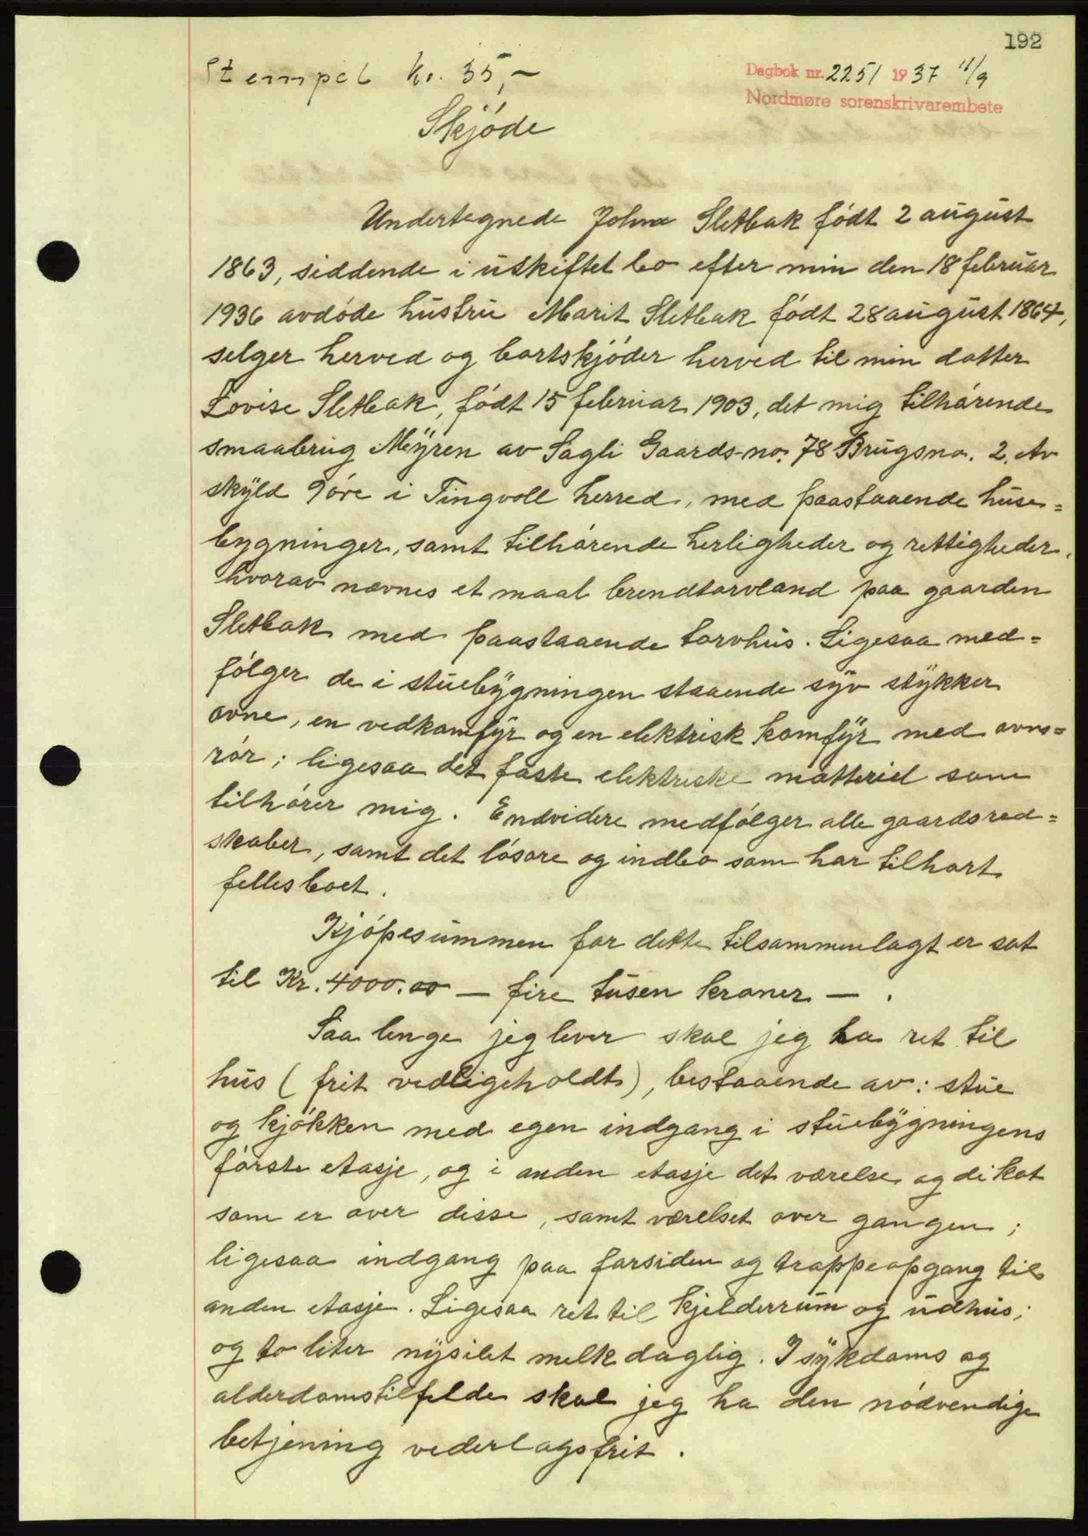 192
Stempel kr. 35,-
Dagbok nr. 2251 1937 11/9
Nordmøre sorenskrivarembete
Skjöde
Undertegnede John Sletbak födt 2 august
1863, siddende i uskiftet bo efter min den 18 februar
1936 avdöde hustru Marit Sletbak födt 28 august 1864,
selger herved og bortskjöder herved til min datter
Lovise Sletbak, födt 15 februar 1903, det mig tilhörende
smaabrug Myren av Sagli Gaards-no. 78 Brugsno. 2. Av
skyld 9 öre i Tingvoll herred, med paastaaende huse=
bygninger, samt tilhörende herligheder og rettigheder,
hvorav nævnes et maal brendtorvland paa gaarden
Sletbak med paastaaende torvhus. Ligesaa med=
fölger de i stuebygningen staaende syv stykker
ovne, en vedkomfyr og en elektrisk komfyr med ovns=
rör; ligesaa det faste elektriske matteriel som
tilhörer mig. Endvidere medfölger alle gaardsred=
skaber, samt det lösöre og indbo som har tilhört
fellesboet.
Kjöpesummen for dette tilsammenlagt er sat
til Kr. 4000.00 — fire tusen kroner — .
Saa lenge jeg lever skal jeg ha ret til
hus (frit vedligeholdt), bestaaende av: stue
og kjökken med egen indgang i stuebygningens
förste etasje, og i anden etasje det værelse og de kot
som er over disse, samt værelset over gangen;
ligesaa indgang paa forsiden og trappeopgang til
anden etasje. Ligesaa ret til kjelderrum og udhus;
og to liter nysilet melk daglig. I sykdoms og
alderdomstilfelde skal jeg ha den nödvendige
betjening vederlagsfrit.